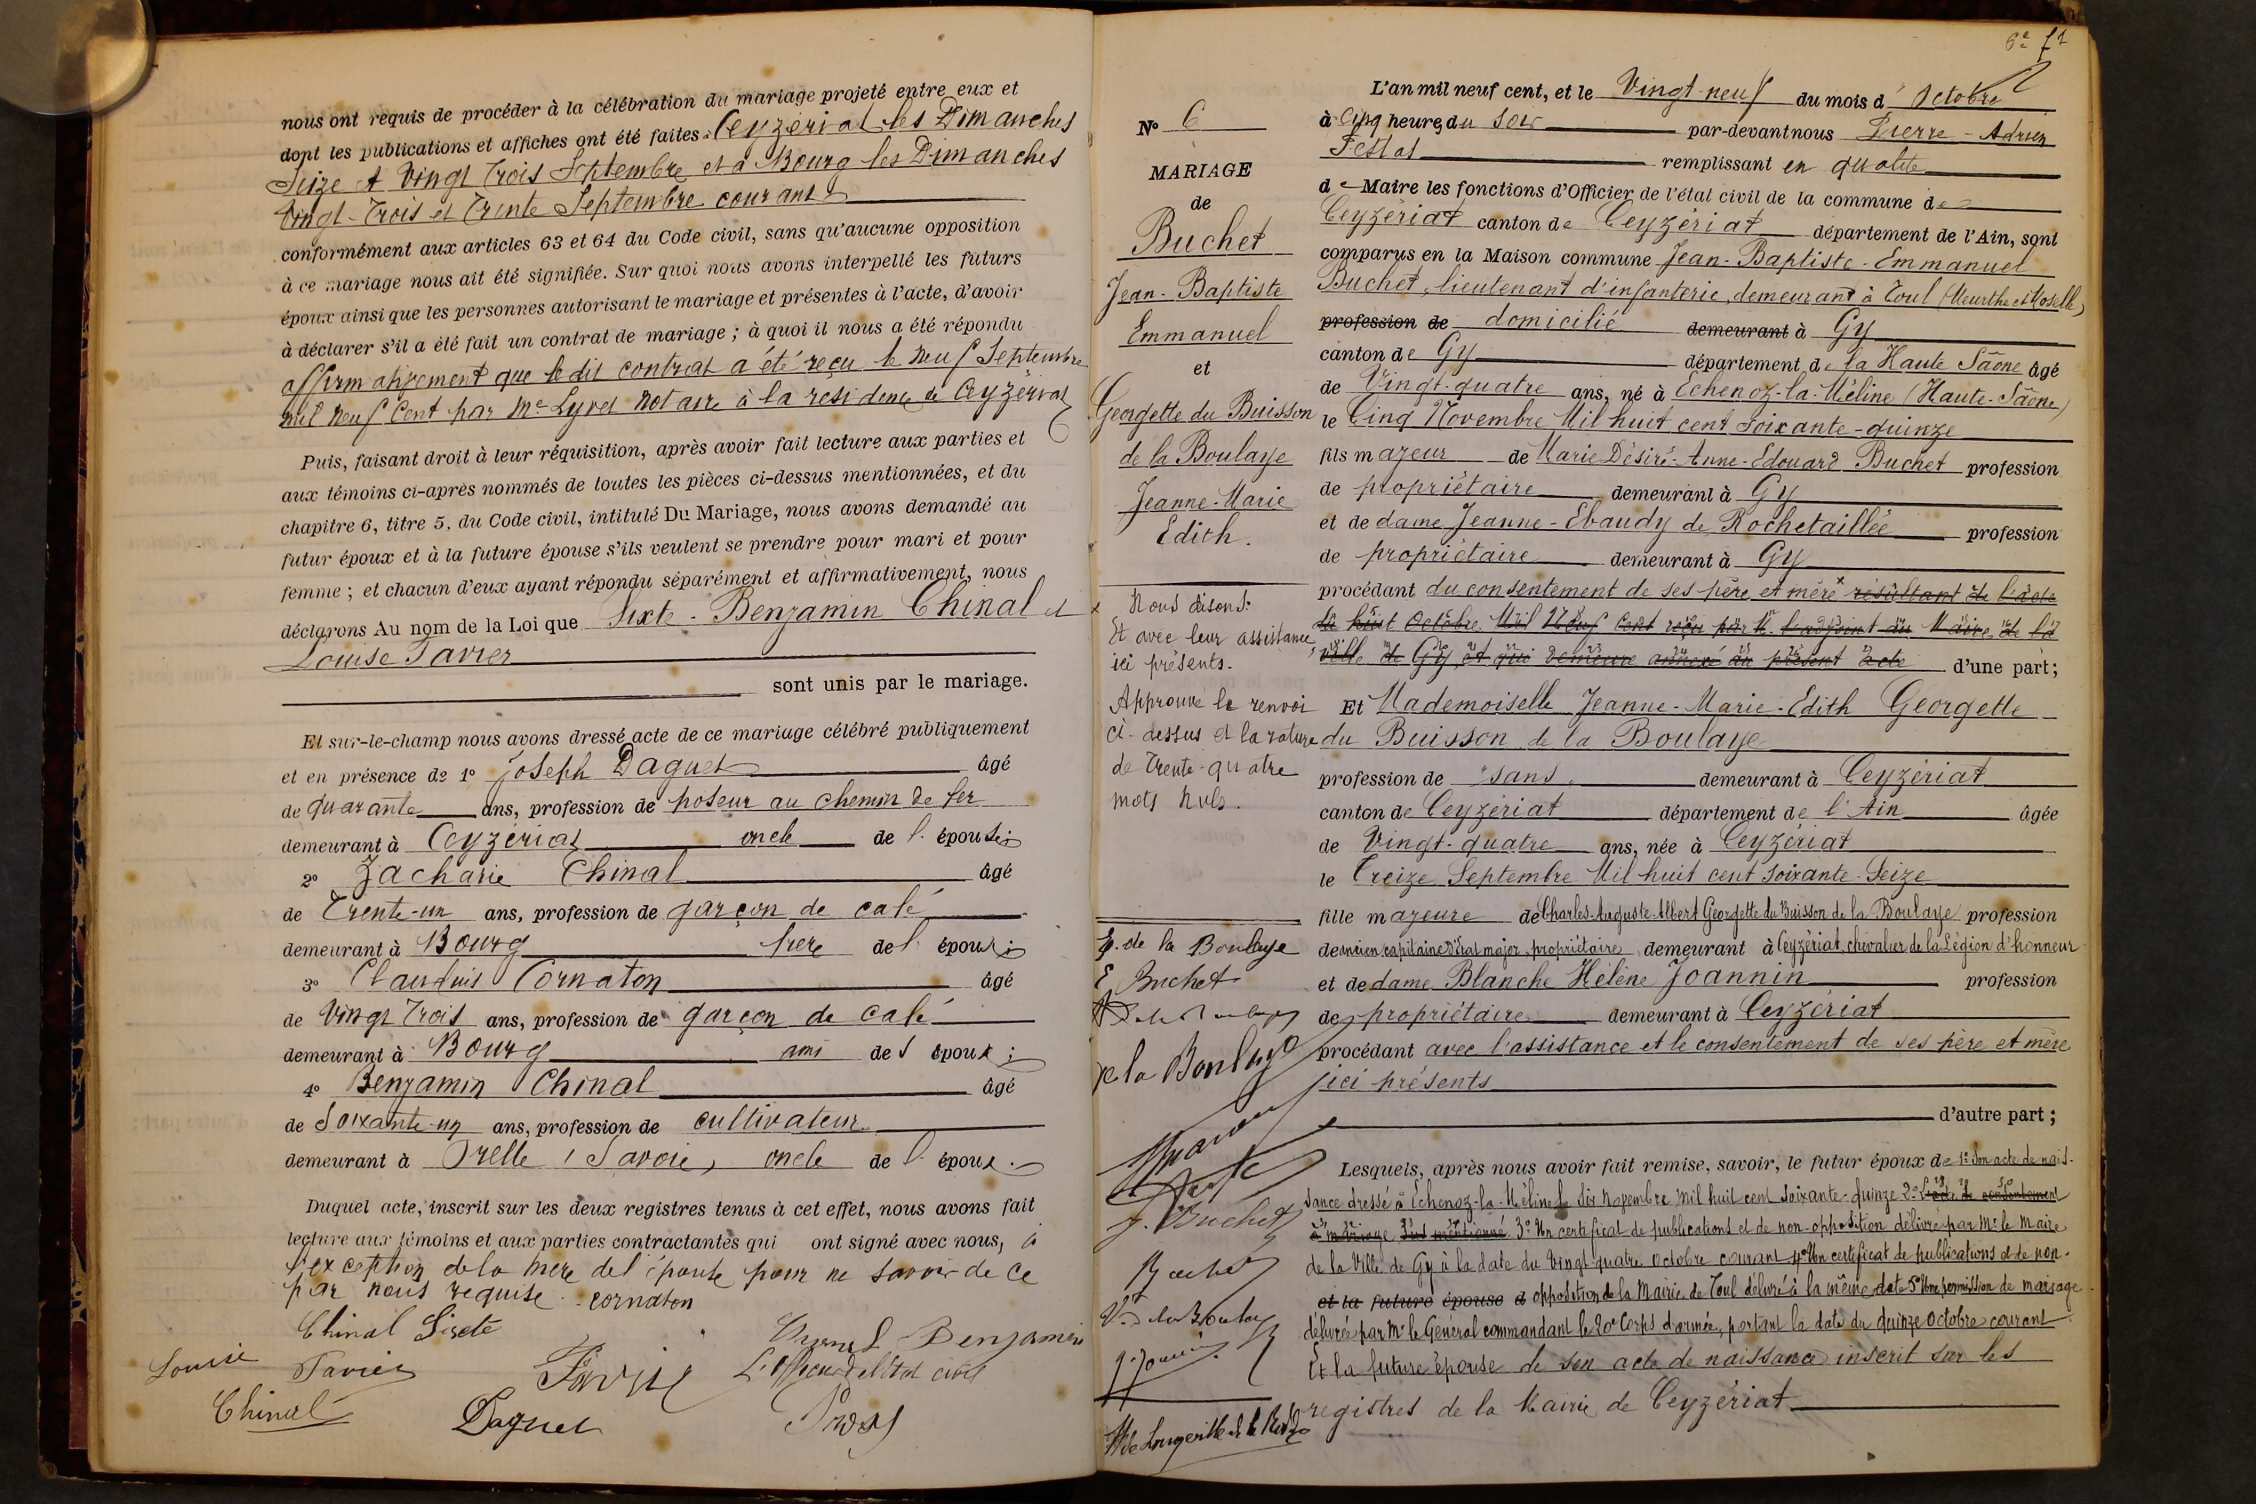 nous ont requis de procéder à la célébration du mariage projeté entre eux et
dont les publications et affiches ont été faites à Ceyzériat les Dimanches
Seize et Vingt Trois Septembre et à Bourg les Dimanches
Vingt-Trois et Trente Septembre courant
conformément aux articles 63 et 64 du Code civil, sans qu'aucune opposition
à ce mariage nous ait été signifiée. Sur quoi nous avons interpellé les futurs
époux ainsi que les personnes autorisant le mariage et présentes à l'acte, d'avoir
à déclarer s'il a été fait un contrat de mariage ; à quoi il nous a été répondu
affirmativement que le dit contrat a été reçu le neuf Septembre
mil neuf Cent par Me Lyvet Notaire à la residence de Ceyzériat
Puis, faisant droit à leur réquisition, après avoir fait lecture aux parties et
aux témoins ci-après nommés de toutes les pièces ci-dessus mentionnées, et du
chapitre 6, titre 5. du Code civil, intitulé Du Mariage, nous avons demandé au
futur époux et à la future épouse s'ils veulent se prendre pour mari et pour
femme ; et chacun d'eux ayant répondu séparément et affirmativement, nous
déclarons Au nom de la Loi que Sixte - Benjamin Chinal et
Louise Tavier
sont unis par le mariage.
Et sur-le-champ nous avons dressé acte de ce mariage célébré publiquement
et en présence de 1° Joseph Daguet âgé
de quarante ans, profession de poseur au chemin de fer
demeurant à Ceyzériat oncle de l' épouse ;
2° Zacharie Chinal âgé
de Trente-un ans, profession de garçon de café
demeurant à Bourg frere de l' époux ;
3° Claudius Cornaton âgé
de Vingt Trois ans, profession de garçon de café
demeurant à Bourg ami de l' époux ;
4° Benjamin Chinal âgé
de Soixante-un ans, profession de cultivateur
demeurant à Orelle (Savoie) oncle de l' époux.
Duquel acte, inscrit sur les deux registres tenus à cet effet, nous avons fait
lecture aux témoins et aux parties contractantes qui ont signé avec nous, à
l'exception de la mere de l'épouse pour ne savoir de ce
par nous requise. cornaton
Chinal Sixte
Chinal Benjamin
Louise Tavier
L'officier de l'état civil
Chinal
Daguet
6e ft
N° 6
MARIAGE
de
Buchet
Jean-Baptiste
Emmanuel
et
Georgette du Buisson
de la Boulaye
Jeanne-Marie
Edith.
x Nous disons:
Et avec leur assistance,
ici présents.
Approuvé le renvoi
ci-dessus et la rature
de Trente-quatre
mots nuls.
L'an mil neuf cent, et le Vingt-neuf du mois d' Octobre
à Cinq heures du soir par-devant nous Pierre - Adrien
Festas remplissant en qualité
de Maire les fonctions d'Officier de l'état civil de la commune de
Ceyzériat canton de Ceyzériat département de l'Ain, sont
comparus en la Maison commune Jean-Baptiste-Emmanuel
Buchet, lieutenant d'infanterie, demeurant à Toul (Meurthe et Moselle)
profession de domicilié demeurant à Gy
canton de Gy département de la Haute Saône âgé
de Vingt-quatre ans, né à Echenoz-la-Méline (Haute-Saône)
le Cinq Novembre Mil huit cent soixante-quinze
fils mageur de Marie Désiré-Anne-Edouard Buchet profession
de propriétaire demeurant à Gy
et de dame Jeanne-Ebaudy de Rochetaillée profession
de propriétaire demeurant à Gy
procédant du consentement de ses père et mère x résultant de l'acte
du huit Octobre Mil Neuf Cent reçu par M. l'adjoint au Maire de la
ville de Gy, et qui demeure annexé au présent acte d'une part ;
Et Mademoiselle Jeanne-Marie-Edith Georgette
du Buisson de la Boulaye
profession de sans demeurant à Ceyzériat
canton de Ceyzériat département de l'Ain âgée
de Vingt-quatre ans, née à Ceyzériat
le Treize Septembre Mil huit cent soixante-Seize
fille mageure de Charles-Auguste-Albert Georgette du Buisson de la Boulaye profession
de ancien capitaine d'Etat major, propriétaire demeurant à Ceyzériat, chevalier de la Légion d'honneur
et de dame Blanche Hélène Joannin profession
de propriétaire demeurant à Ceyzériat
procédant avec l'assistance et le consentement de ses père et mère
ici présents
d'autre part ;
Lesquels, après nous avoir fait remise, savoir, le futur époux de 1° Son acte de nais-
sance dressé à Echenoz-la-Méline le Six Novembre mil huit cent soixante-quinze 2° l'acte de consentement
à mariage sus mentionné 3° Un certificat de publications et de non-opposition délivré par Mr le Maire
de la Ville de Gy à la date du Vingt-quatre octobre courant 4° Un certificat de publications et de non-
et la future épouse d opposition de la Mairie de Toul délivré à la même date 5° Une permission de mariage
délivrée par Mr le Général commandant le 20e Corps d'armée, portant la date du quinze Octobre courant
Et la future épouse de son acte de naissance inscrit sur les
registres de la Mairie de Ceyzériat
E. de la Boulaye
E Buchet
de la Boulaye
J. Buchet
Buchet